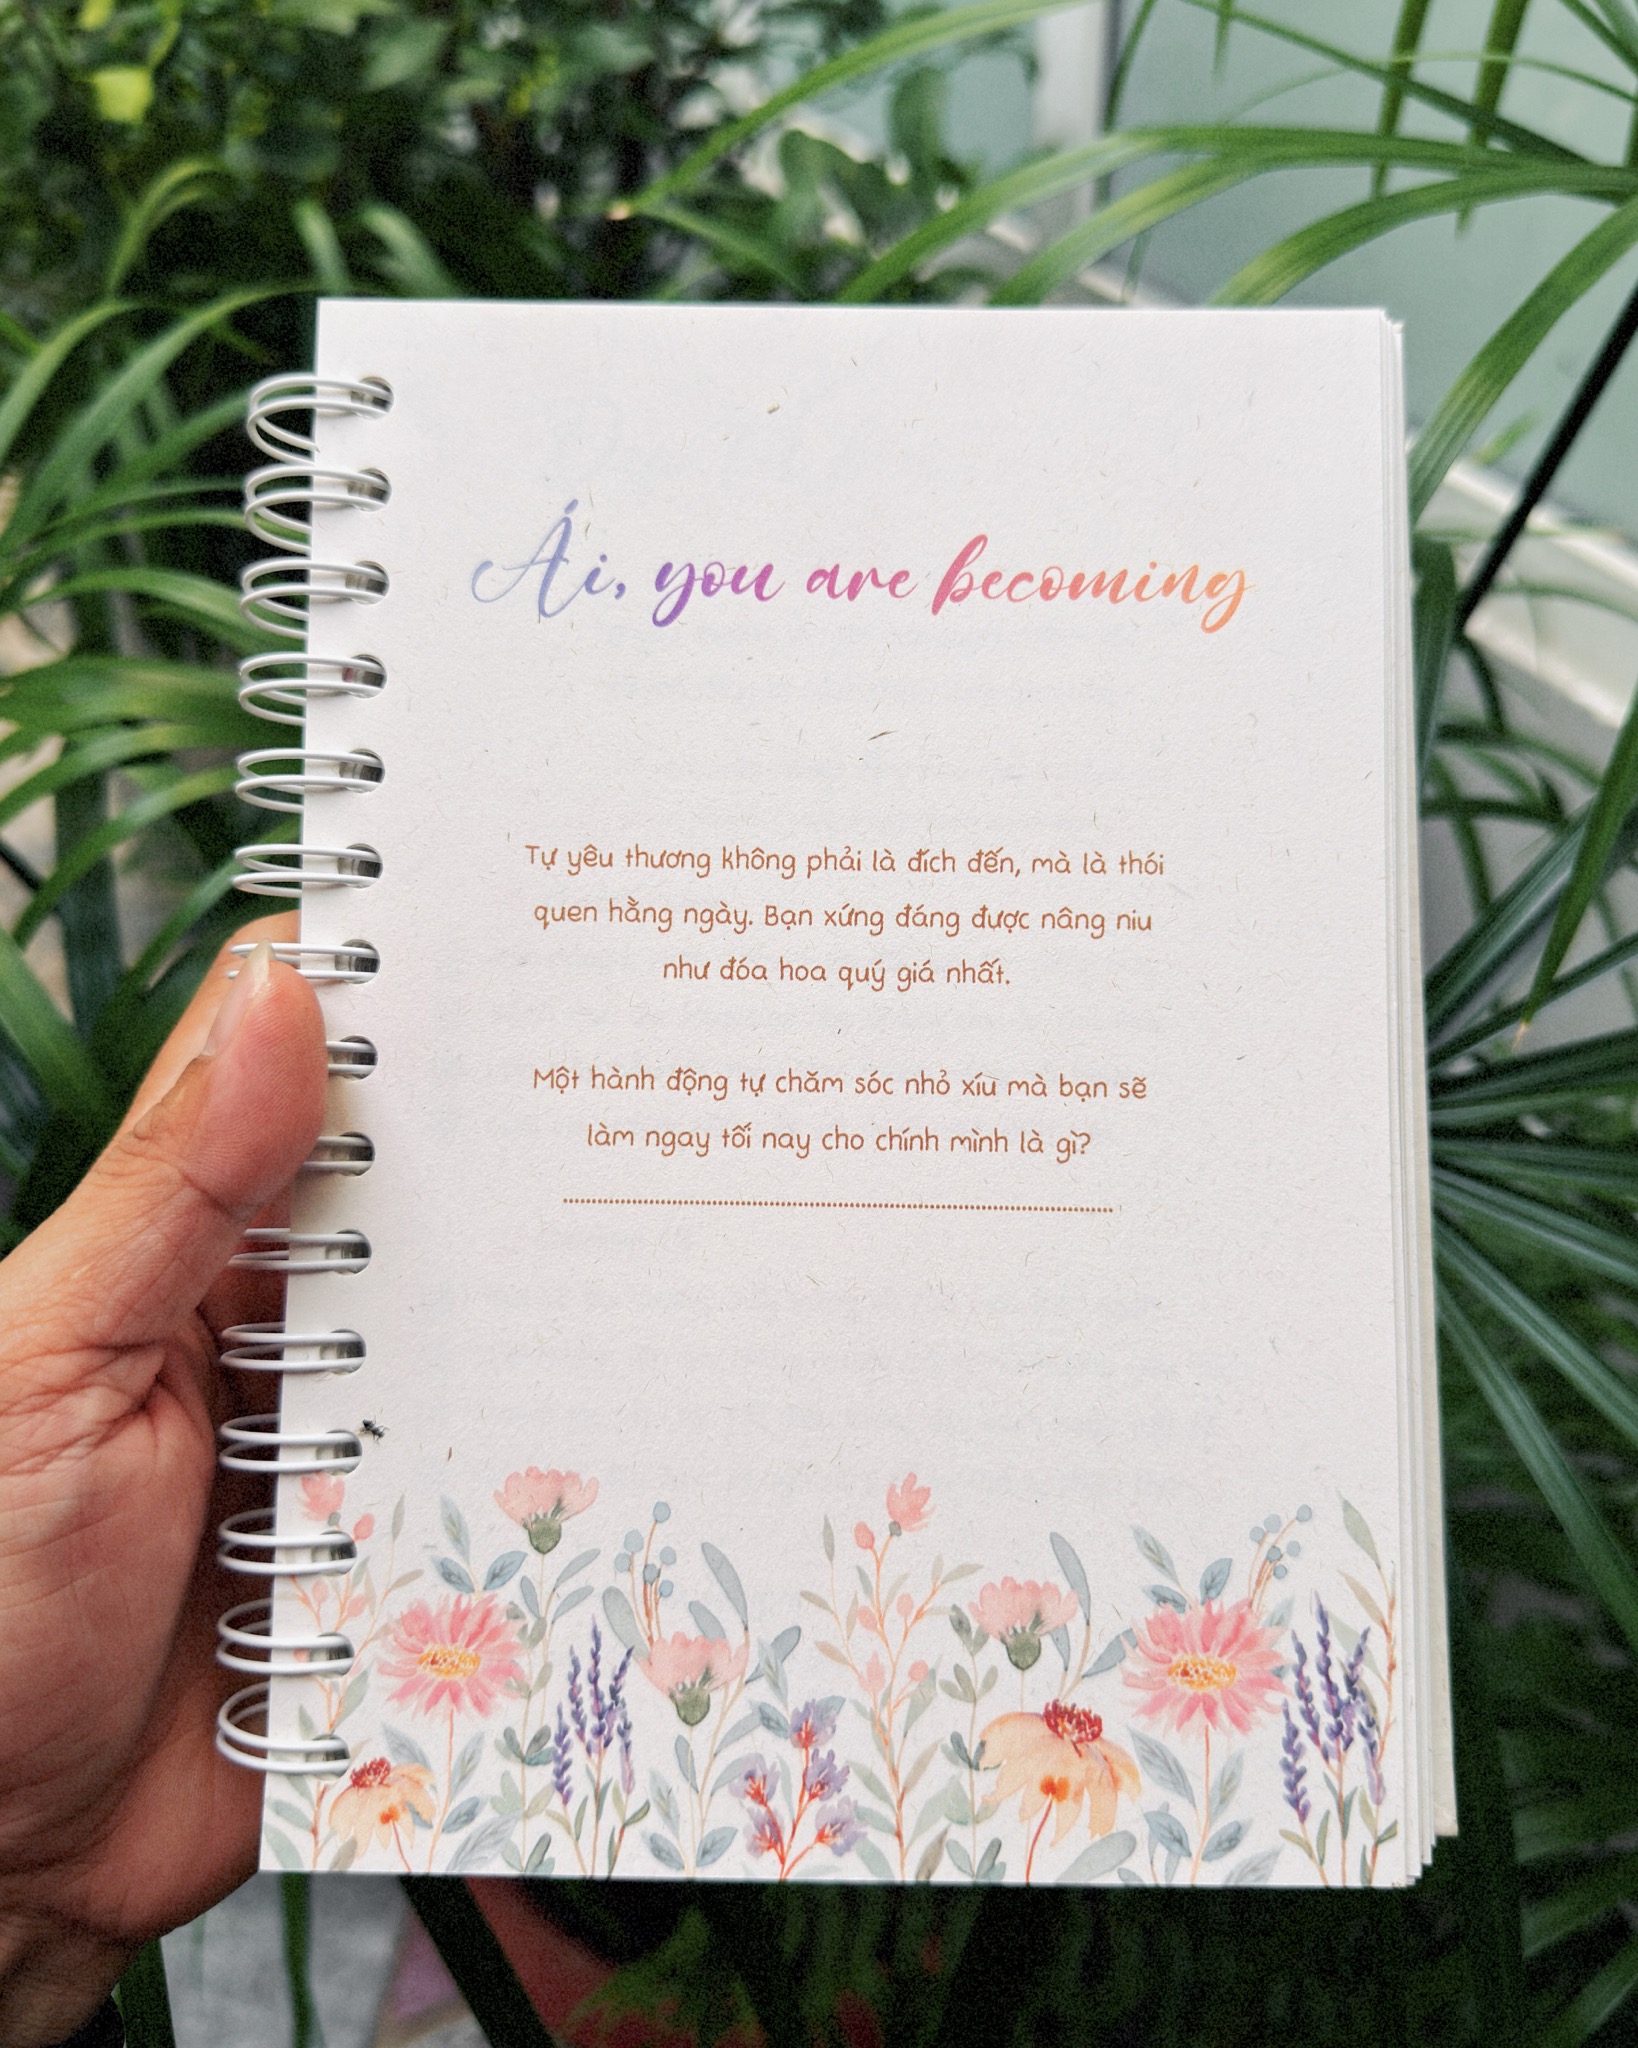 Ái, you are becoming
Tự yêu thương không phải là đích đến, mà là thói
quen hằng ngày. Bạn xứng đáng được nâng niu
như đóa hoa quý giá nhất.
Một hành động tự chăm sóc nhỏ xíu mà bạn sẽ
làm ngay tối nay cho chính mình là gì?